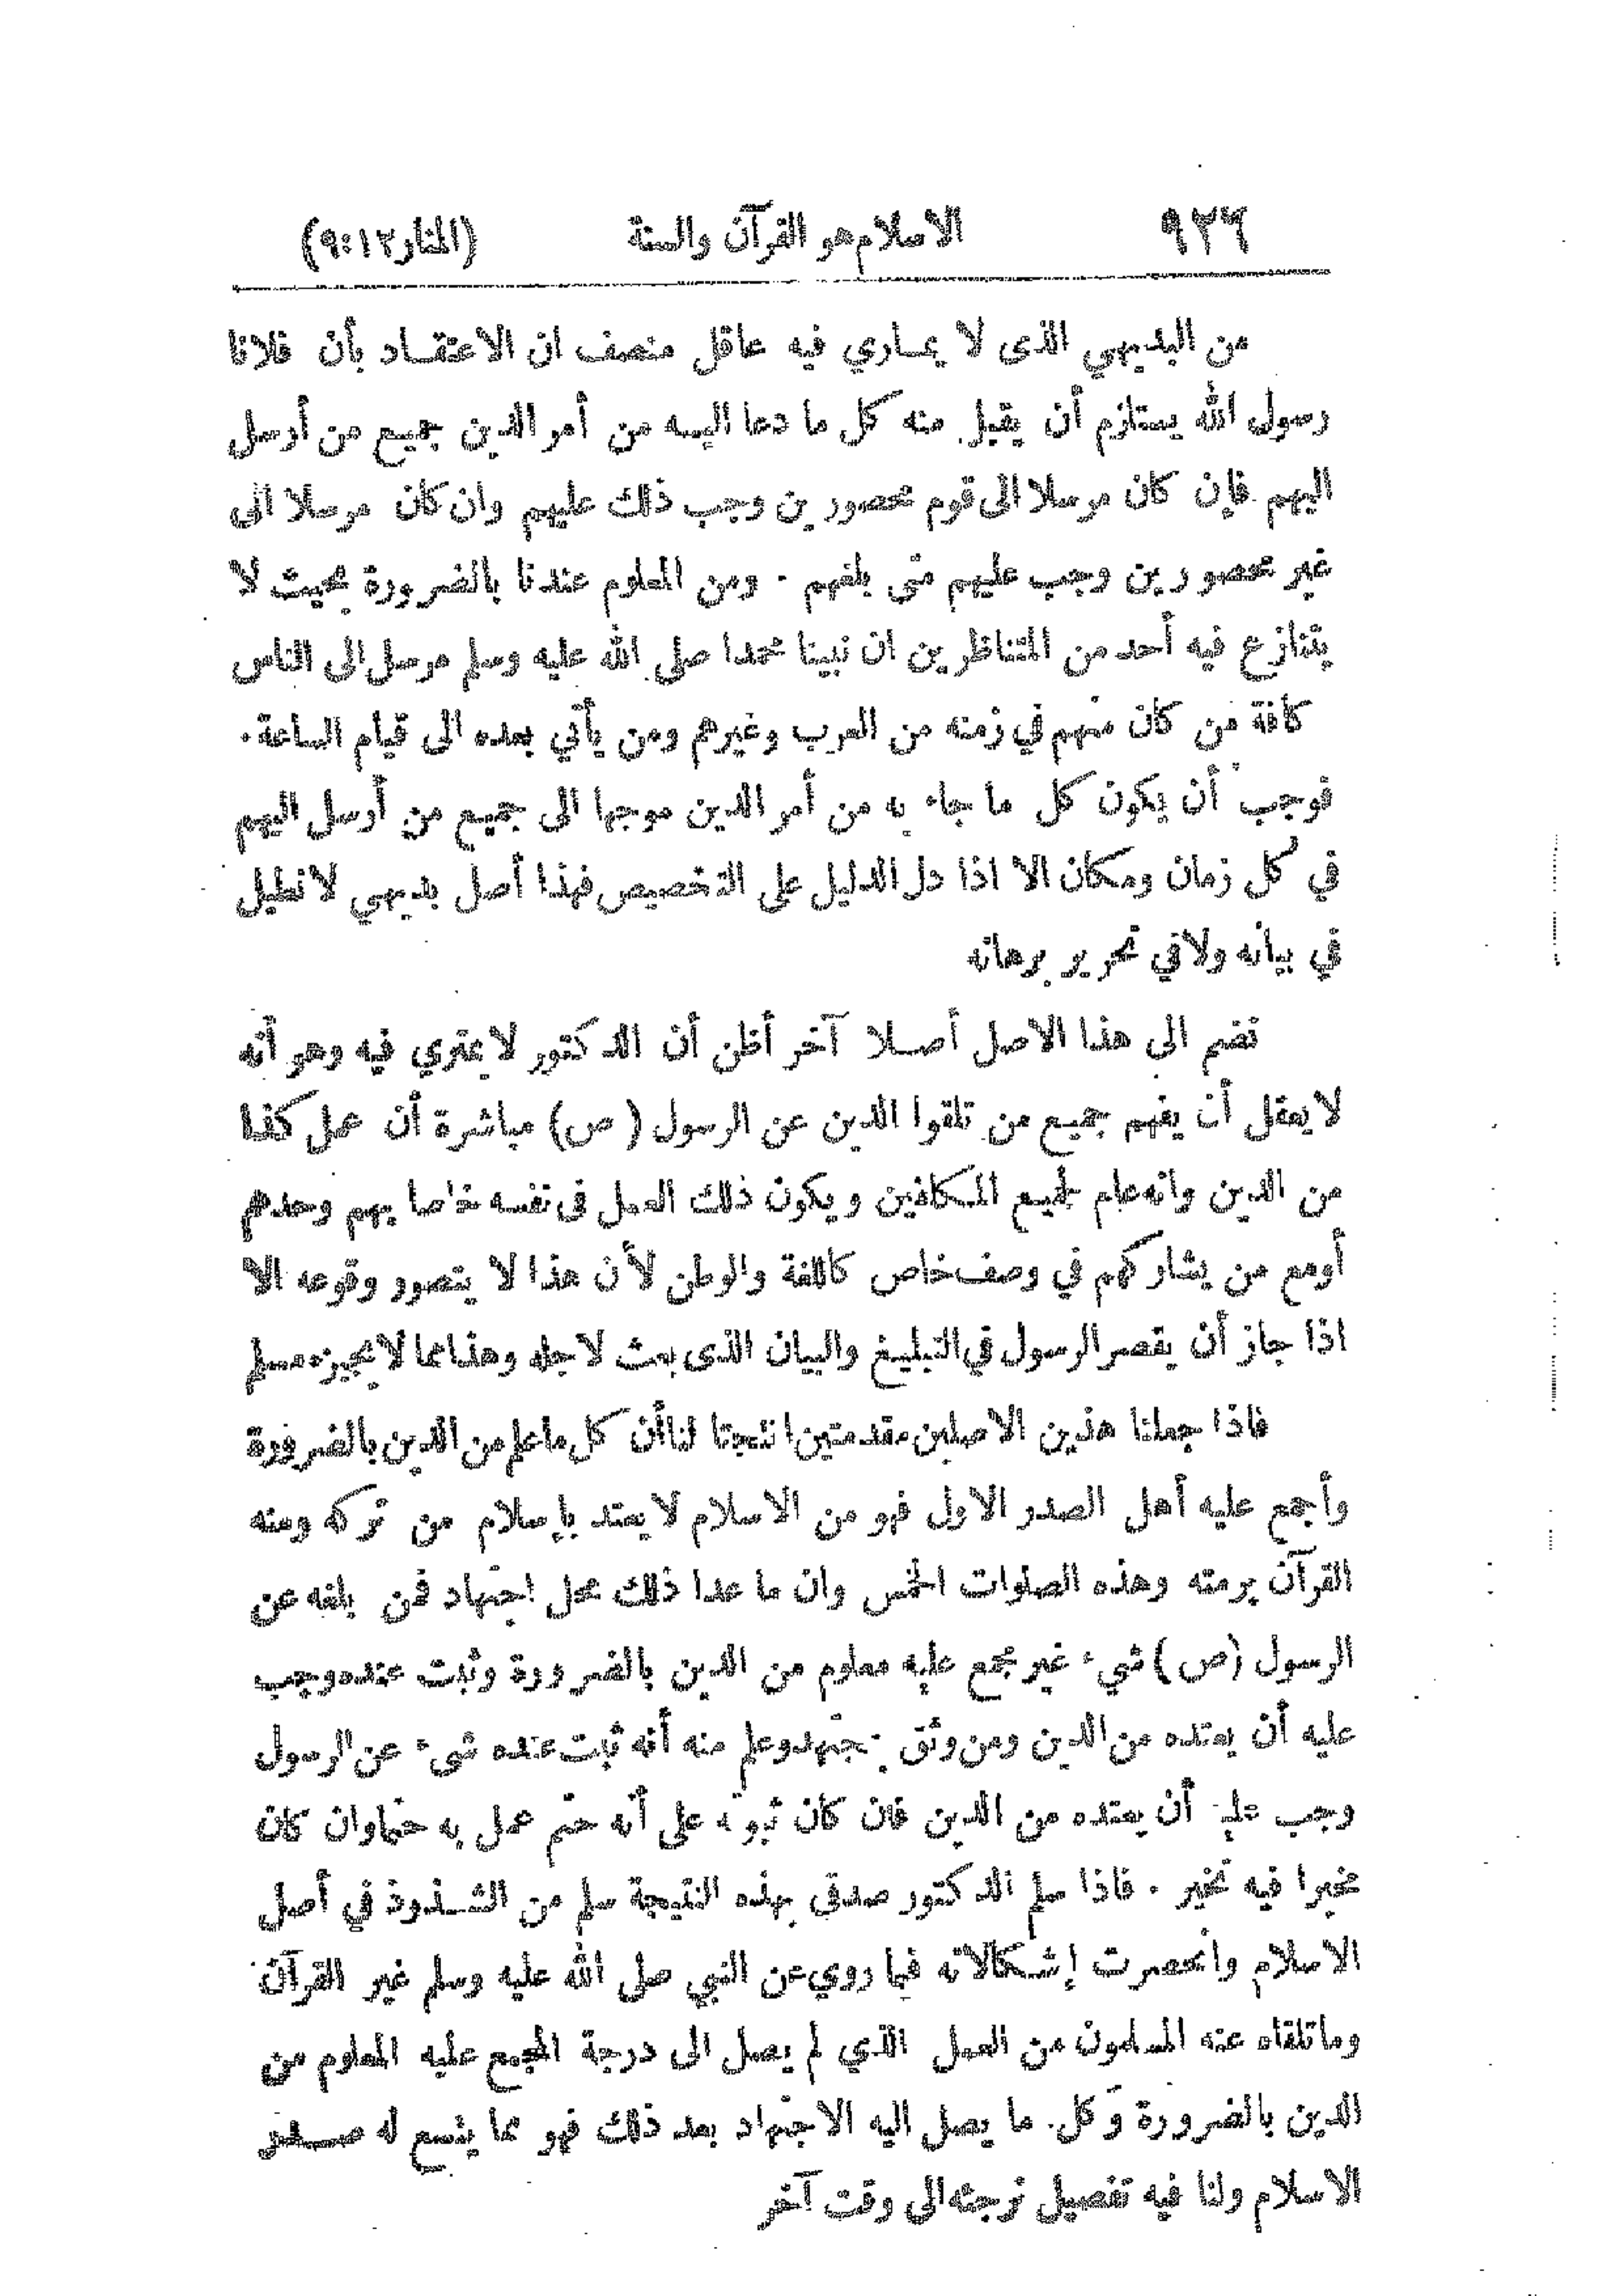 ٩٢٦ الاسلام هو القرآن والسنة (المنار ١٢:٩)
من البديهي الذى لا يمـاري فيه عاقل منصف ان الاعتقـاد بأن فلانا
رسول الله يستلزم أن يقبل منه كل ما دعا اليـه من أمر الدين جميع من أرسل
اليهم فإن كان مرسلا الى قوم محصورين وجب ذلك عليهم وان كان مرسلا الى
غير محصورين وجب عليهم متى بلغهم . ومن المعلوم عندنا بالضرورة بحيث لا
يتنازع فيه أحد من المتناظرين ان نبينا محمدا صلى الله عليه وسلم مرسل الى الناس
كافة من كان منهم في زمنه من العرب وغيرهم ومن يأتي بعده الى قيام الساعة .
فوجب أن يكون كل ما جاء به من أمر الدين موجها الى جميع من أرسل اليهم
في كل زمان ومكان الا اذا دل الدليل على التخصيص فهذا أصل بديهي لا نطيل
في بيانه ولا في تحرير برهانه
نضم الى هذا الاصل أصـلا آخر أظن أن الدكتور لا يمتري فيه وهو أنه
لا يعقل أن يفهم جميع من تلقوا الدين عن الرسول (ص) مباشرة أن عمل كذا
من الدين وانه عام لجميع المكلفين ويكون ذلك العمل في نفسه خاصا بهم وحدهم
أو مع من يشاركهم في وصف خاص كاللغة والوطن لأن هذا لا يتصور وقوعه الا
اذا جاز أن يقصر الرسول في التبليغ والبيان الذى بعث لاجله وهذا مما لا يجيزه مسلم
فاذا جعلنا هذين الاصلين مقدمتين انتجتا لنا أن كل ما علم من الدين بالضرورة
وأجمع عليه أهل الصدر الاول فهو من الاسلام لا يعتد بإسلام من تركه ومنه
القرآن برمته وهذه الصلوات الخمس وان ما عدا ذلك محل اجتهاد فمن بلغه عن
الرسول (ص) شيء غير مجمع عليه معلوم من الدين بالضرورة وثبت عنده وجب
عليه أن يعتده من الدين ومن وثق بمجتهد وعلم منه أنه ثبت عنده شيء عن الرسول
وجب عليه أن يعتده من الدين فان كان ثبوته على أنه حتم عمل به حتما وان كان
مخيرا فيه تخير . فاذا سلم الدكتور صدقي بهذه النتيجة سلم من الشـذوذ في أصل
الاسلام وانحصرت إشكالاته فيما روي عن النبي صلى الله عليه وسلم غير القرآن
وما تلقاه عنه المسلمون من العمل الذي لم يصل الى درجة المجمع عليه المعلوم من
الدين بالضرورة وكل ما يصل اليه الاجتهاد بعد ذلك فهو مما يتسع له صـدر
الاسلام ولنا فيه تفصيل نرجئه الى وقت آخر